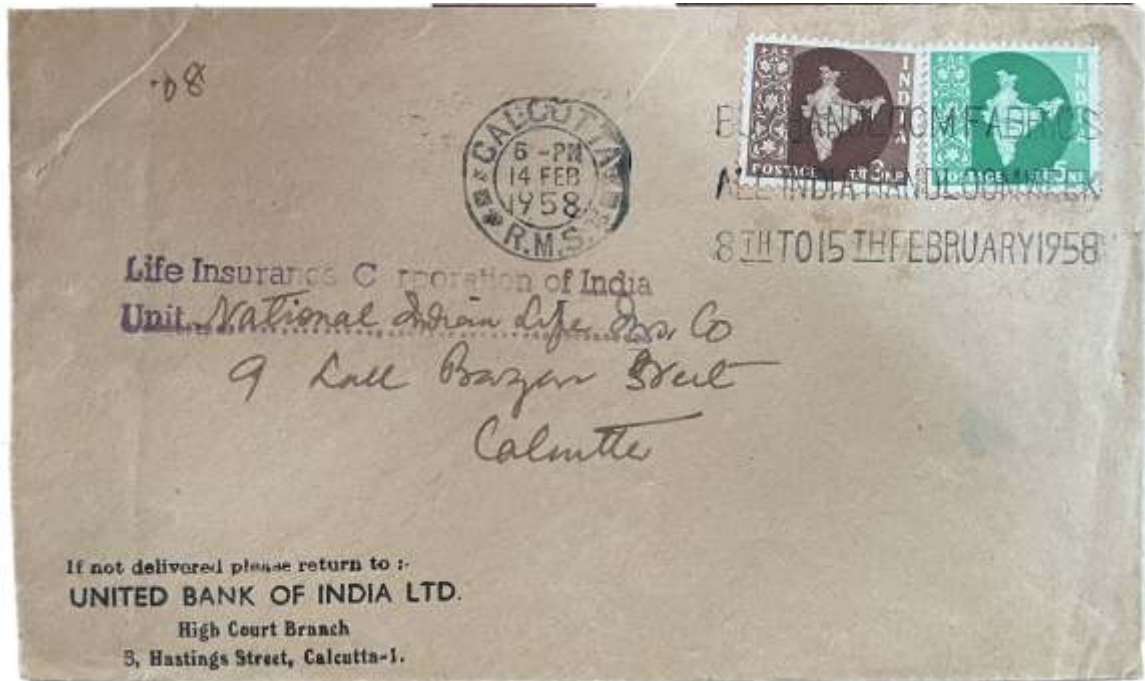 CALCUTTA
6 - PM
14 FEB
1958
R.M.S.
INDIA
POSTAGE 3 N.P.
INDIA
POSTAGE 5 N.P.
BUY HANDLOOM FABRICS
ALL INDIA HANDLOOM WEEK
8 TH TO 15 TH FEBRUARY 1958
Life Insurance C rporation of India
Unit National Indian Life Ins. Co
9 Lall Bazar Street
Calcutta
If not delivered please return to :-
UNITED BANK OF INDIA LTD.
High Court Branch
3, Hastings Street, Calcutta-1.